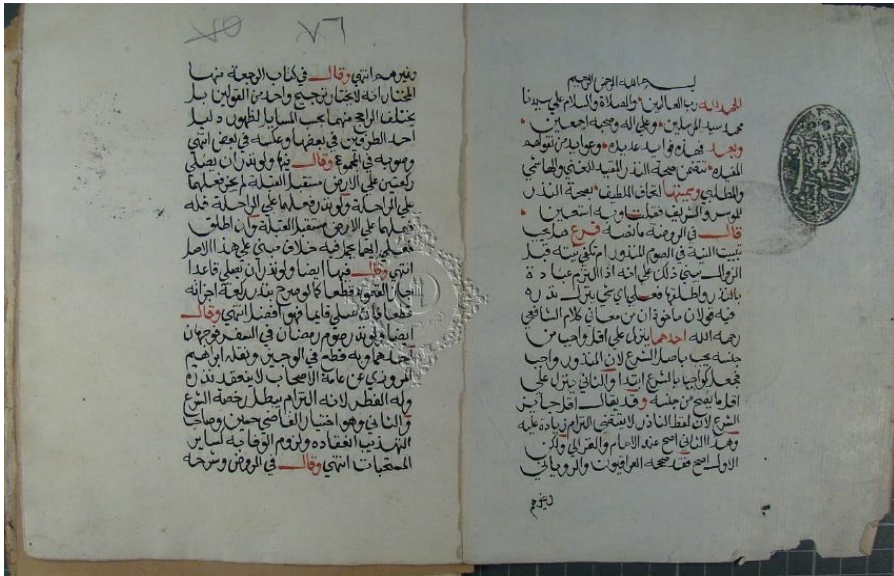 بسم الله الرحمن الرحيم
الحمد لله رب العالمين والصلاة والسلام علي سيدنا
محمد سيد المرسلين وعلي اله وصحبه اجمعين
وبعد فهذه فوايد عديدة وعوايد من نقولهم
المفيده تتضمن صحة النذر المقيد للغني والهاشمي
والمطلبي وسميتها اتحاف اللطيف بصحة النذر
للموسر والشريف فقلت وبه استعين
قال في الروضة ما نصه فرع هل يجب
تبييت النية في الصوم المنذور ام تكفي نيته قبل
الزوال يبني ذلك علي انه اذا التزم عبادة
بالنذر واطلقها فعلي اي شي ينزل نذره
فيه قولان ماخوذان من معاني كلام الشافعي
رحمه الله احدهما ينزل علي اقل واجب من
جنسه يجب باصل الشرع لان المنذور واجب
فجعل كواجب بالشرع ابتدا والثاني ينزل علي
اقل ما يصح من جنسه وقد يقال اقل جايز
الشرع لان لفظ الناذر لا يقتضي التزام زيادة عليه
وهذا الثاني اصح عند الامام والغزالي ولكن
الاول اصح فقد صححه العراقيون والروياني
وغيرهم
وغيرهم انتهي وقال في كتاب الرجعة منها
المختار انه لا يختار ترجيح واحد من القولين بل
يختلف الراجح منهما بحسب المسايل لظهور دليل
احد الطرفين في بعضها وعكسه في بعض انتهي
وصوبه في المجموع وقال فيها ولو نذر ان يصلي
ركعتين علي الارض مستقبل القبلة لم يجز فعلهما
علي الراحلة ولو نذر فعلهما علي الراحلة فله
فعلهما علي الارض مستقبل القبلة وان اطلق
فعلي ايهما يحمل فيه خلاف مبني علي هذا الاصل
انتهي وقال فيها ايضا ولو نذر ان يصلي قاعدا
جاز القعود قطعا كما لو صرح بنذر ركعة اجزاته
قطعا فان صلي قايما فهو افضل انتهي وقال
ايضا ولو نذر صوم رمضان في السفر فوجهان
احدهما وبه قطع في الوجيز ونقله ابراهيم
المروزي عن عامة الاصحاب لا ينعقد نذره
وله الفطر لانه التزام يبطل رخصة الشرع
والثاني وهو اختيار القاضي حسين وصاحب
التهذيب انعقاده ولزوم الوفا به كساير
المستحبات انتهي وقال في الروض وشرحه